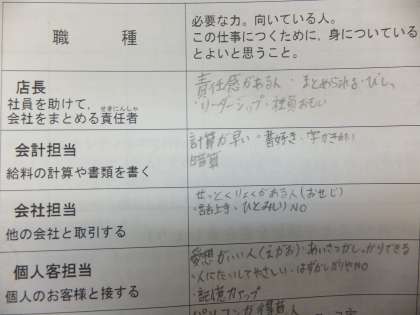 職種
必要な力。向いている人。
この仕事につくために、身についている
とよいと思うこと。
店長
社員を助けて、
会社をまとめる責任者
せきにんしゃ
責任感がある人・まとめられる・
・リーダーシップ・社員おもい
会計担当
給料の計算や書類を書く
計算が早い・書好き・字がきれい
暗算
会社担当
他の会社と取引する
せっとくりょくがある人(おせじ)
・話上手・ひとみしりNO
個人客担当
個人のお客様と接する
愛想がいい人(えがお)・あいさつがしっかりできる
・人にたいしてやさしい・はずかしがりやNO
・記憶力アップ
パソコンが得意